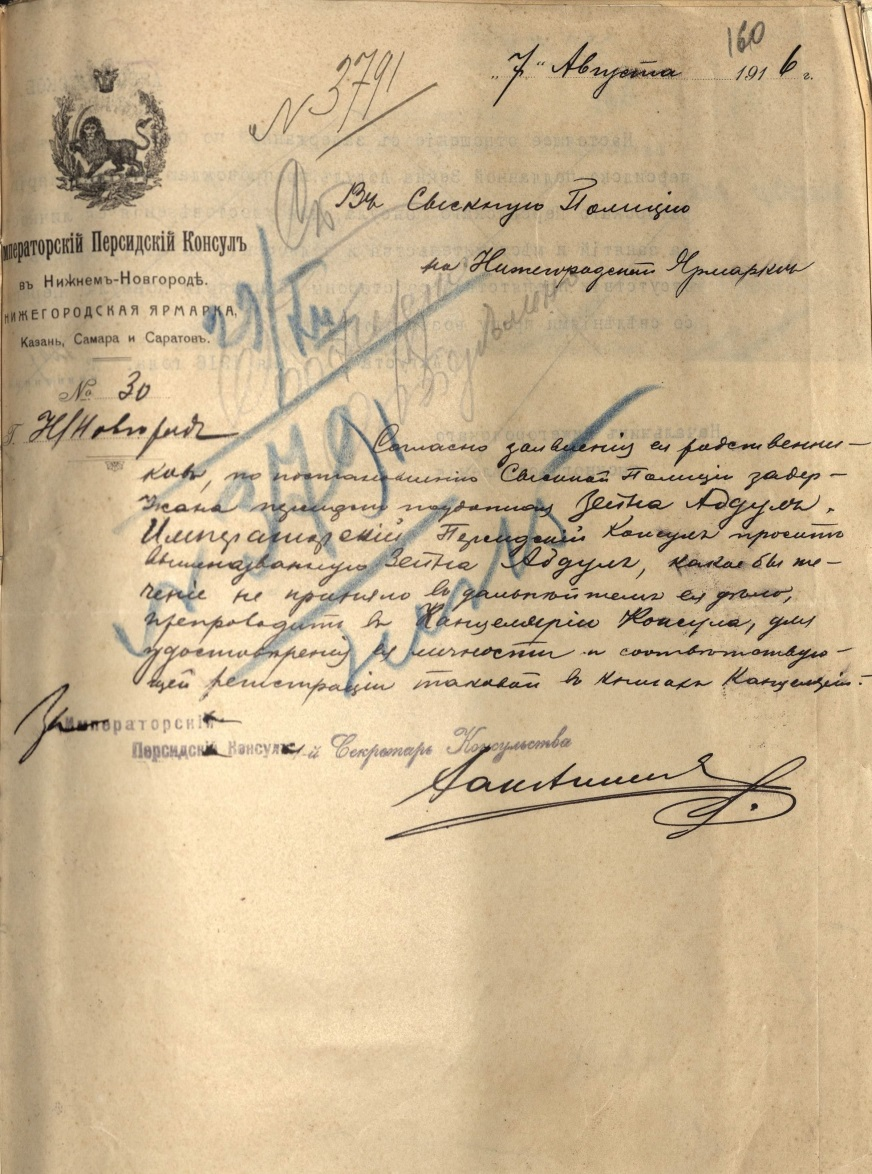 160
"7" Августа 1916 г.
N 3791
Императорскій Персидскій Консулъ
въ Нижнемъ-Новгородѣ.
НИЖЕГОРОДСКАЯ ЯРМАРКА,
Казань, Самара и Саратовъ.
№ 30
Г. Н/Новгородъ
Въ Сыскную Полицію
на Нижегородской Ярмаркѣ
Согласно заявленія ея родственни-
ковъ, по постановленію Сыскной Полиціи задер-
жана персидско подданная Зейна Абдулъ.
Императорскій Персидскій Консулъ проситъ
вышеназванную Зейна Абдулъ, какое бы те-
ченіе не приняло въ дальнѣйшемъ ея дѣло,
препроводить въ Канцелярію Консула, для
удостовѣренія ея личности и соотвѣтствую-
щей регистраціи таковой въ книгахъ Канцеляріи.
За Императорскій
Персидскій Консулъ
й Секретарь Консульства